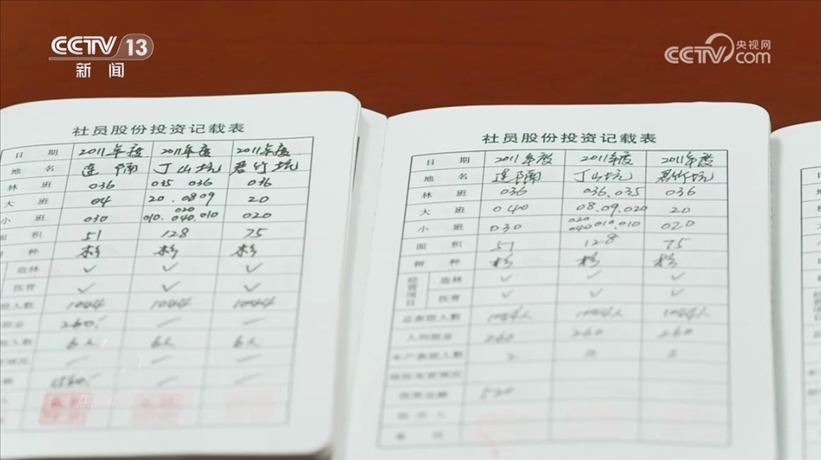 CCTV 13
新闻
央视网
CCTV com
社员股份投资记载表
日期 2011年度 2011年度 2011年度
地名 莲隔 丁山坑 君竹坑
林班 036 035 036 036
大班 04 20.0809 20
小班 030 020 010.040.010 020
面积 51 128 75
树种 杉 杉 杉
造林 ✓ ✓ ✓
抚育 ✓ ✓ ✓
股人数 1044 1044 1044
股金 260.- — —
人数 6人 6人 6人
额 1560.- — —
社员股份投资记载表
日期 2011年度 2011年度 2011年度
地名 莲隔 丁山坑 君竹坑
林班 036 036.035 036
大班 040 08.09.020 20
小班 030 020 040.010.010 020
面积 51 128 75
树种 杉 杉 杉
经营项目 造林 ✓ ✓ ✓
抚育 ✓ ✓ ✓
总参股人数 1044人 1044人 1044人
人均股金 260 260 260
本户参股人数 2
股权变更情况
投资金额 520